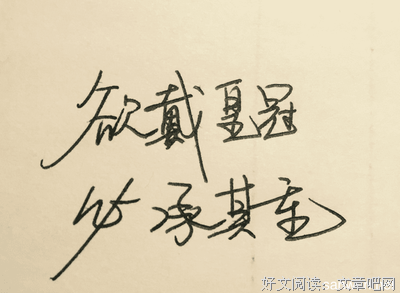 欲戴皇冠
必承其重
好文阅读:文章吧网